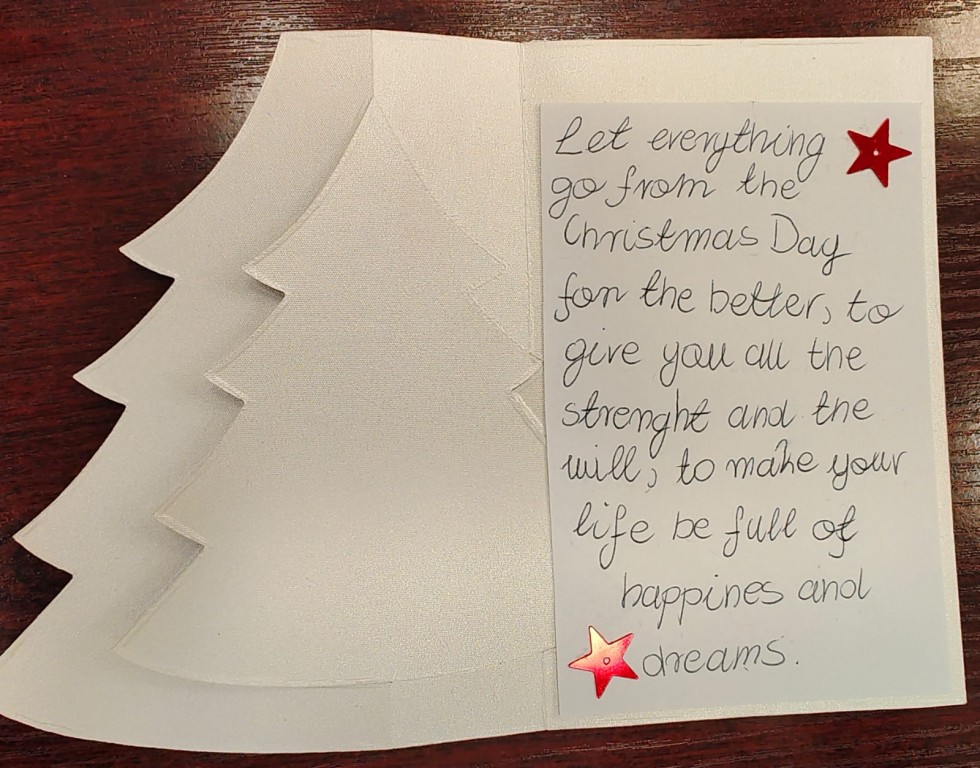 Let everything
go from the
Christmas Day
for the better, to
give you all the
strenght and the
will, to make your
life be full of
happines and
dreams.